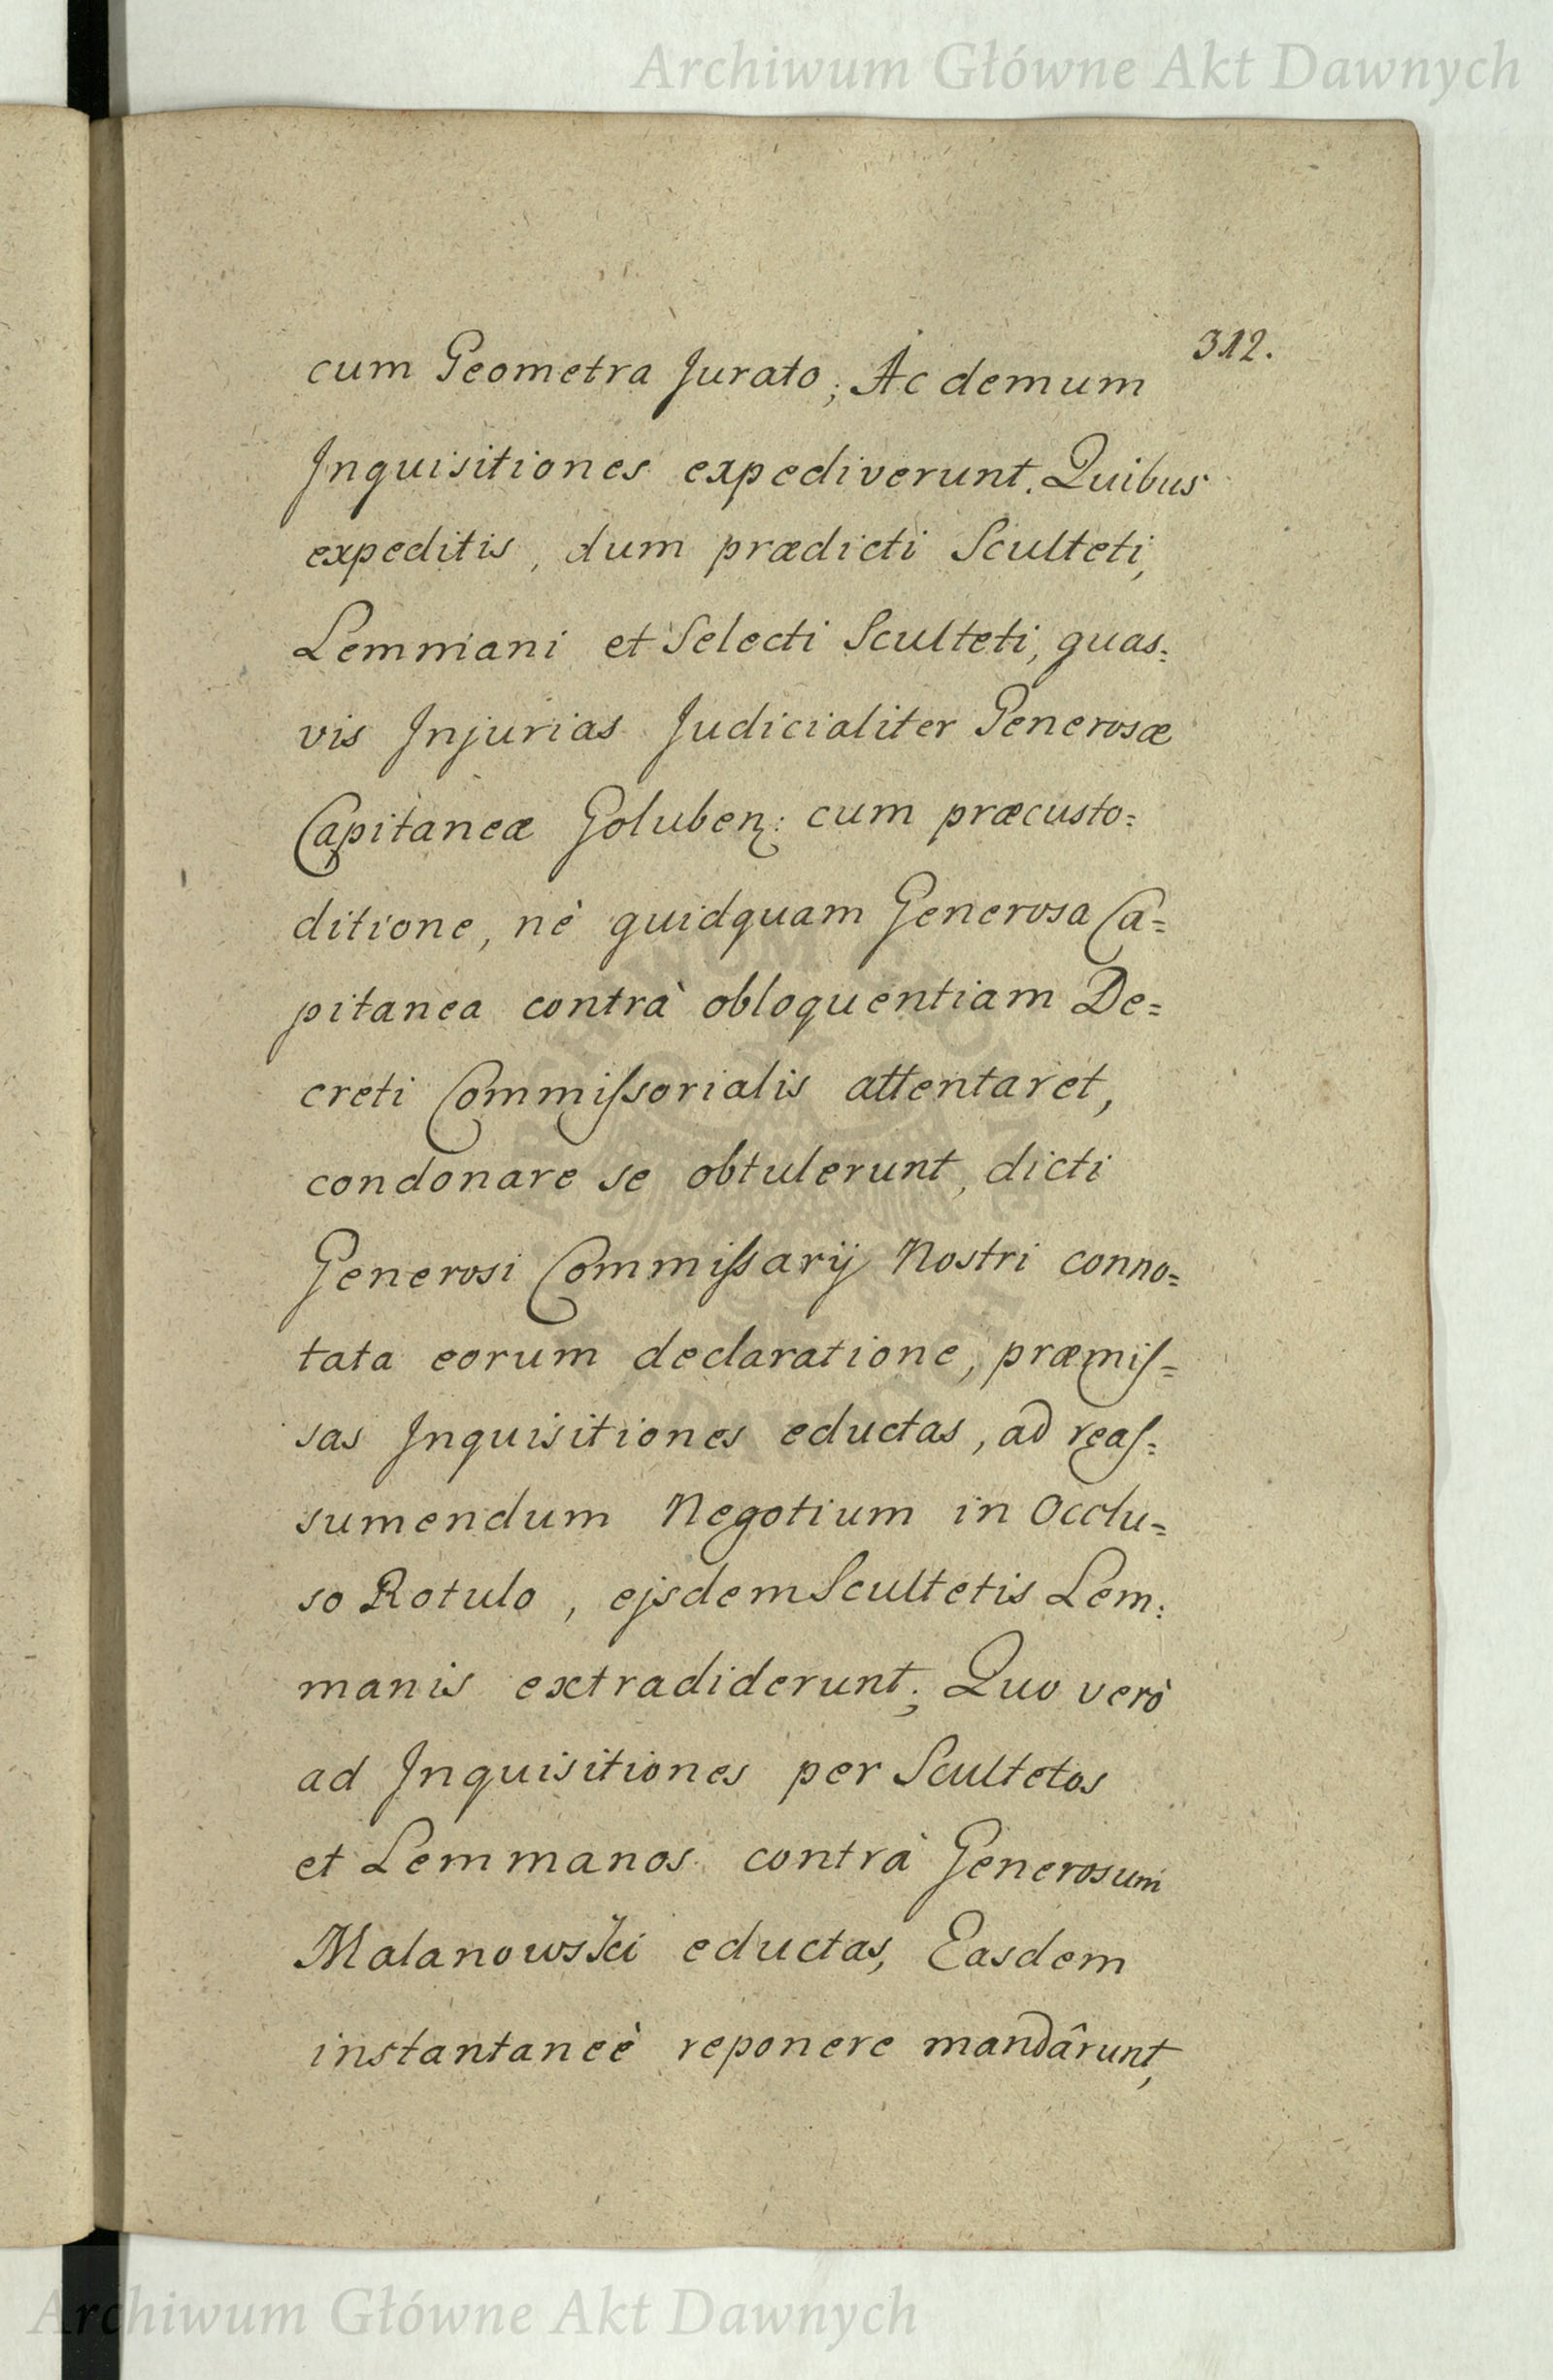 Archiwum Główne Akt Dawnych
312.
cum Geometra Jurato; Ac demum
Inquisitiones expediverunt. Quibus
expeditis, dum prædicti Sculteti,
Lemmani et Selecti Sculteti, quas:
vis Injurias Judicialiter Generosæ
Capitaneæ Goluben: cum præcusto=
ditione, nè quidquam Generosa Ca=
pitanea contrà obloquentiam De=
creti Commiſsorialis attentaret,
condonare se obtulerunt, dicti
Generosi Commiſsarij Nostri conno=
tata eorum declaratione, præmiſ=
sas Inquisitiones eductas, ad reaſ=
sumendum Negotium in Occlu=
so Rotulo, ejsdem Scultetis Lem:
manis extradiderunt; Quo verò
ad Inquisitiones per Scultetos
et Lemmanos contrà Generosum
Malanowski eductas, Easdem
instantaneè reponere mandârunt,
Archiwum Główne Akt Dawnych